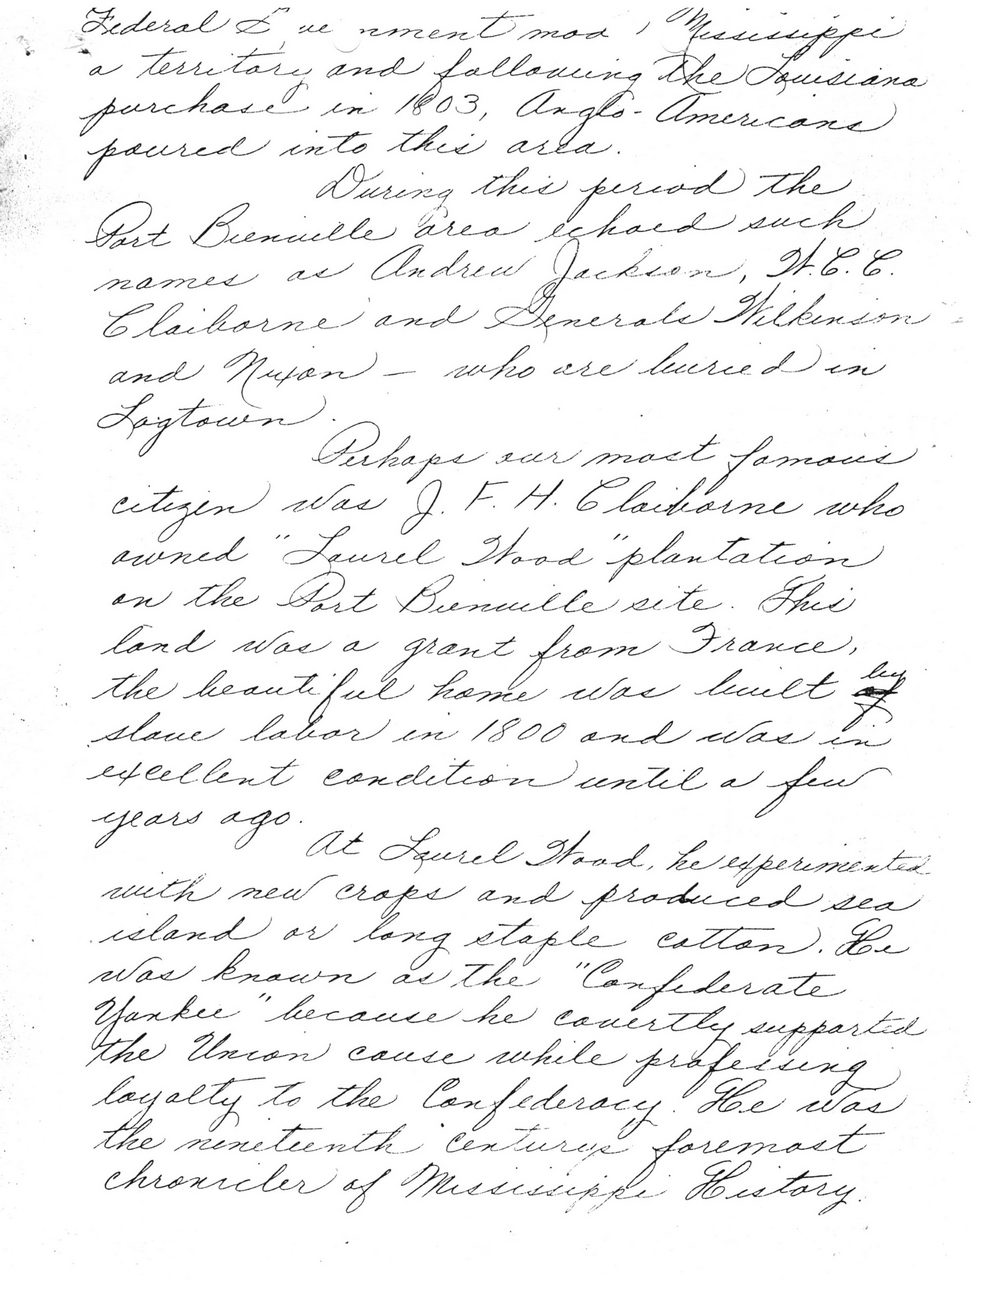 Federal Government mad Mississippi
a territory and following the Louisiana
purchase in 1803, Anglo-Americans
poured into this area.
During this period the
Port Bienville area echoed such
names as Andrew Jackson, W.C.C.
Claiborne and Generals Wilkinson
and Nixon – who are buried in
Logtown.
Perhaps our most famous
citizen was J. F. H. Claiborne who
owned "Laurel Wood" plantation
on the Port Bienville site. This
land was a grant from France,
the beautiful home was built by
slave labor in 1800 and was in
excellent condition until a few
years ago.
At Laurel Wood, he experimented
with new crops and produced sea
island or long staple cotton. He
was known as the "Confederate
Yankee" because he covertly supported
the Union cause while professing
loyalty to the Confederacy. He was
the nineteenth centurys foremost
chronicler of Mississippi History.